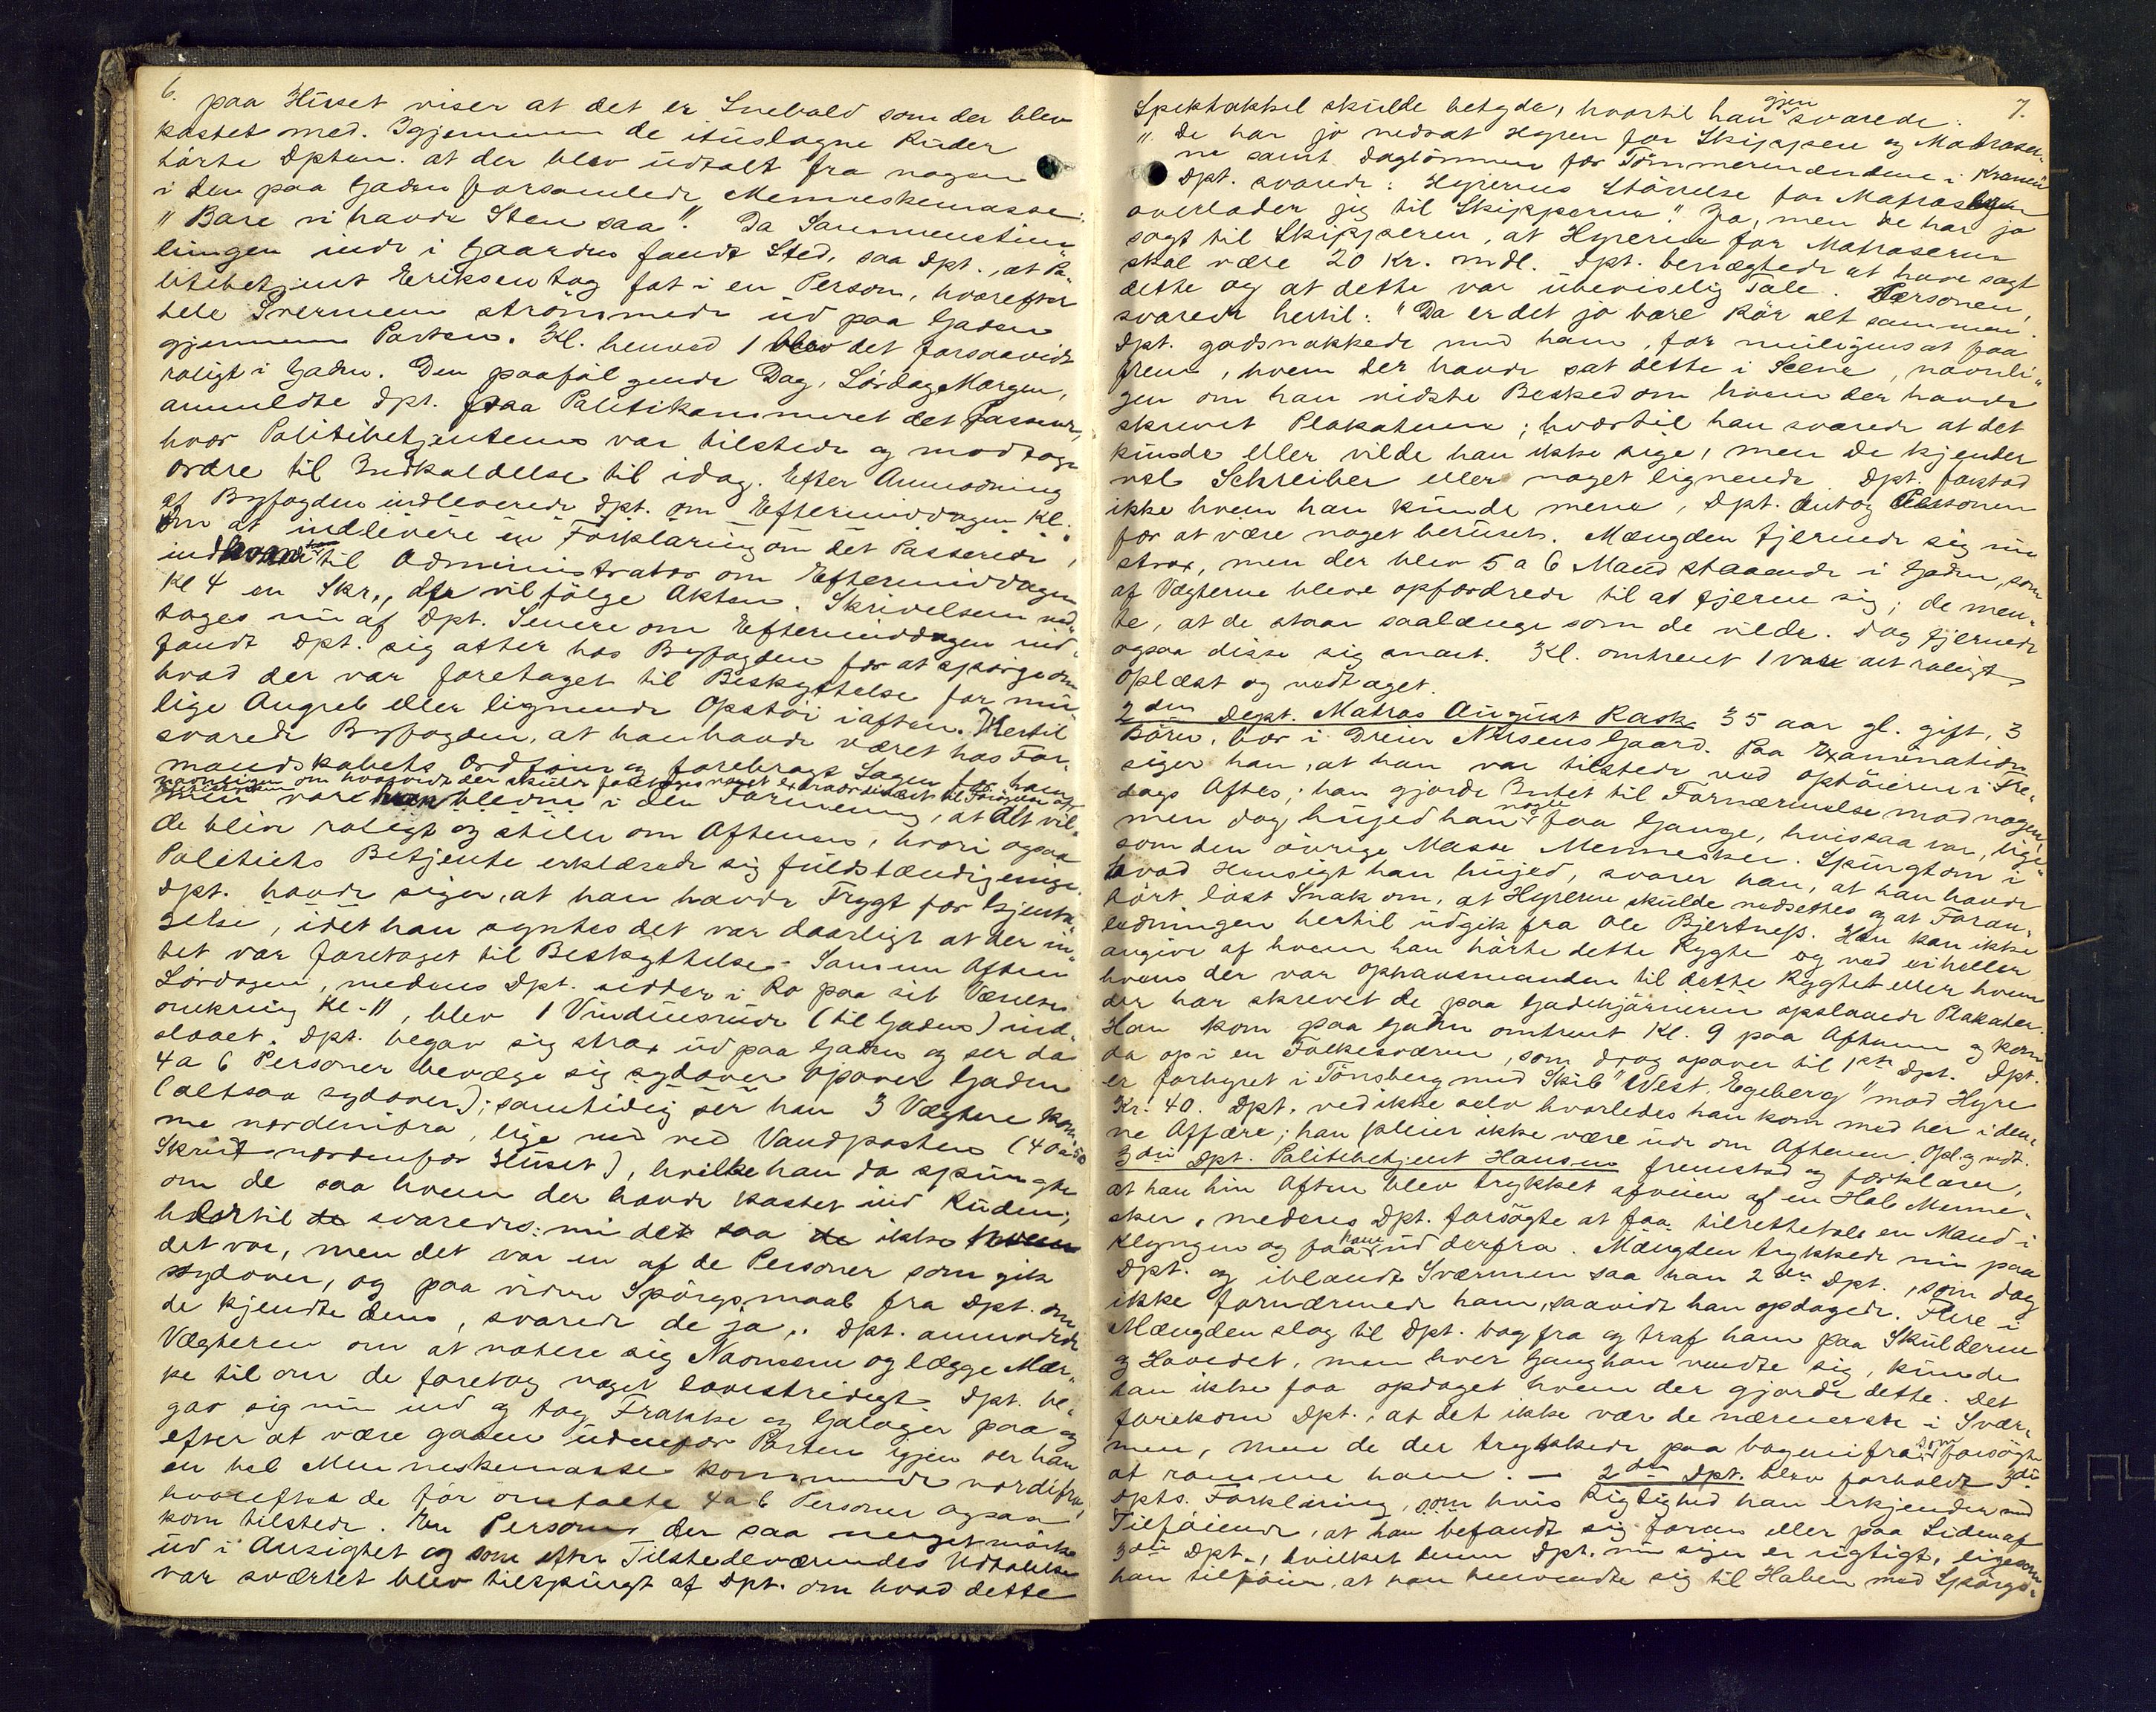 6.
paa Huset viser at det er Snebold som der blev
kastet med. Igjennem de ituslagne Ruder
hørte Dpten. at der blev udtalt fra nogen
i den paa Gaden forsamlede Menneskemasse:
"Bare vi havde Sten saa". Da Sammenstim-
lingen inde i Gaarden fandt Sted, saa Dpt., at Po-
litibetjent Eriksen tog fat i en Person, hvorefter
hele Svermen strømmede ud paa Gaden
gjennem Porten. Kl. henved 1 blev det forsaavidt
roligt i Gaden. Den paafølgende Dag, Lørdag Morgen,
anmeldte Dpt. paa Politikammeret det Passerede,
hvor Politibetjentene var tilstede og modtoge
Ordre til Indkaldelse til idag. Efter Anmodning
af Byfogden indleverede Dpt. om Eftermiddagen Kl.
om at indlevere en Forklaring om det Passerede,
ind til Administrator om Eftermiddagen
Kl 4 en Skr., der vil følge Akten. Skrivelsen ved-
toges nu af Dpt. Senere om Eftermiddagen ind-
fandt Dpt. sig atter hos Byfogden for at spørge om
hvad der var foretaget til Beskyttelse for mu-
lige Angreb eller lignende Opstøi iaften. Hertil
svarede Byfogden, at han havde været hos For-
mandskabets Ordfører og forebragt Sagen for ham
navnligen om hvorvidt der skulde foretages noget extraordinært til Forøgelse af
men vare blevne i den Formening, at Alt vil-
de blive roligt og stille om Aftenen, hvori ogsaa
Politiets Betjente erklærede sig fuldstændig enige.
Dpt. havde siger, at han havde Frygt for Gjenta-
gelse, idet han syntes det var daarligt at der in-
tet var foretaget til Beskyttelse. Samme Aften
Lørdagen, medens Dpt. sidder i Ro paa sit Værelse
omkring Kl. 11, blev 1 Vindusrude (til Gaden) ind-
slaaet. Dpt. begav sig strax ud paa Gaden og ser da
4 a 6 Personer bevæge sig sydover opover Gaden
(altsaa sydover); samtidig ser han 3 Vægtere kom-
me nordenifra, lige ned ved Vandposten (40 a 50
Skridt nordenfor Huset), hvilke han da spurgte
om de saa hvem der havde kastet ind Ruden;
hvortil de svarede: nu det saa de ikke hvem
det var, men det var en af de Personer som gik
sydover, og paa videre Spørgsmaal fra Dpt. om
de kjendte dem, svarede de ja. Dpt. anmodede
Vægteren om at notere sig Navnene og lægge Mær-
ke til om de foretog noget lovstridigt. Dpt. be-
gav sig nu ind og tog Frakke og Galoger paa og
efter at være gaaen udenfor Porten igjen ser han
en hel Menneskemasse kommende nordifra,
hvorefter de før omtalte 4 a 6 Personer ogsaa
kom tilstede. En Person, der saa meget mørk
ud i Ansigtet og som efter Tilstedeværendes Udtalelse
var sværtet blev tilspurgt af Dpt. om hvad dette
7.
Spektakkel skulde betyde, hvortil han gjen svarede:
"De har jo nedsat Hyren for Skippere og Matroser-
ne samt Daglønnen for Tømmermændene i Kramen
Dpt. svarede: Hyrernes Størrelse for Matroserne
overlader jeg til Skipperne". Ja, men de har jo
sagt til Skipperen, at Hyrerne for Matroserne
skal være 20 Kr. mdl. Dpt. benægtede at have sagt
dette og at dette var ubeviselig Tale. Personen
svarede hertil: "Da er det jo bare Rør alt sammen".
Dpt. godsnakkede med ham, for muligens at faa
frem, hvem der havde sat dette i Scene, navnli-
gen om han vidste Besked om hvem der havde
skrevet Plakaterne; hvortil han svarede at det
kunde eller vilde han ikke sige, men De kjender
vel Schreiber eller noget lignende. Dpt. forstod
ikke hvem han kunde mene, Dpt. antog Personen
for at være noget beruset. Mængden fjernede sig nu
strax, men der blev 5 a 6 Mand staaende i Gaden, som
af Vægterne bleve opfordrede til at fjerne sig; de men-
te, at de staar saalænge som de vilde. Dog fjernede
ogsaa disse sig snart. Kl. omtrent 1 var alt roligt
Oplæst og vedtaget.
2den Dept. Matros August Rask 35 aar gl. gift, 3
Børn, bor i Dreier Nilsens Gaard. Paa Examination
siger han, at han var tilstede ved Optøierne i Fre-
dags Aftes; han gjorde Intet til Fornærmelse mod nogen;
men dog hujed han nogle faa Gange, hvis saa var, lige-
som den øvrige Masse Mennesker. Spurgt om i
hvad Hensigt han hujed, svarer han, at han havde
hørt løst Snak om, at Hyrerne skulde nedsettes og at Foran-
ledningen hertil udgik fra Ole Bjertness. Han kan ikke
angive af hvem han hørte dette Rygte og ved ei heller
hvem der var Ophavsmanden til dette Rygtet eller hvem
der har skrevet de paa Gadehjørnerne opslaaede Plakater.
Han kom paa Gaden omtrent Kl. 9 paa Aftenen og kom
da op i en Folkesværm, som drog opover til 1ste Dpt. Dpt.
er forhyret i Tønsberg med Skib "West. Egeberg" mod Hyre
Kr. 40. Dpt. ved ikke selv hvorledes han kom med her i den-
ne Affære; han pleier ikke være ude om Aftenen. Opl. og vedt.
3die Dpt. Politibetjent Hansen fremstod og forklarer,
at han hin Aften blev trykket afveien af en Hob Menne-
sker, medens Dpt. forsøgte at faa tilrettetale en Mand i
Klyngen og faa ham ud derfra. Mængden trykkede nu paa
Dpt. og iblandt Sværmen saa han 2den Dpt., som dog
ikke fornærmede ham, saavidt han opdagede. Flere i
Mængden slog til Dpt. bag fra og traf ham paa Skulderen
og Hovedet, men hver Gang han vendte sig, kunde
han ikke faa opdaget hvem der gjorde dette. Det
forekom Dpt., at det ikke var de nærmeste i Svær-
men, men de der trykkede paa bagenifra som forsøgte
at ramme ham. — 2den Dpt. blev forholdt 3die
Dpts. Forklaring, som hvis Rigtighed han erkjender med
Tilføiende, at han befandt sig foran eller paa Siden af
3die Dpt., hvilket denne Dpt. nu siger er rigtigt, ligesom
han tilføier, at han henvendte sig til Haben med Spørgs-